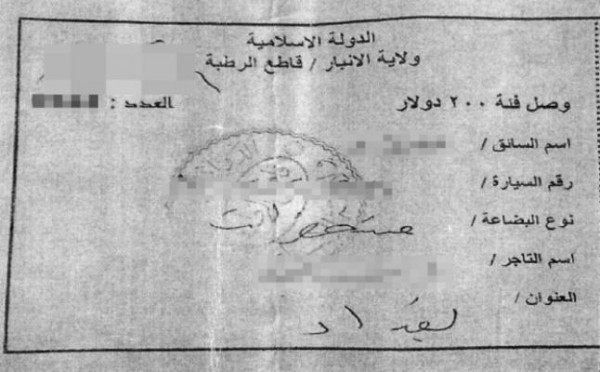 الدولة الاسلامية
ولاية الانبار / قاطع الرطبة
وصل فئة ٢٠٠ دولار العدد :
اسم السائق /
رقم السيارة /
نوع البضاعة /
اسم التاجر /
العنوان / بغداد